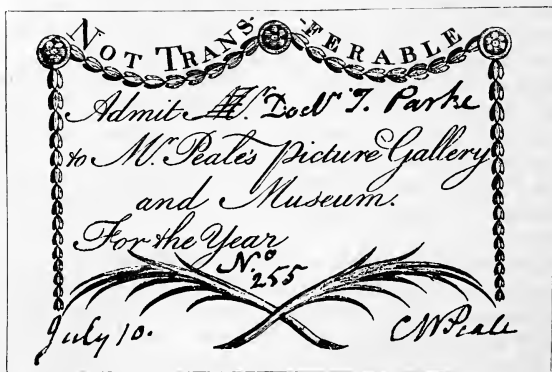 NOT TRANS-FERABLE
Admit Mr. Doctr T. Parke
to Mr. Peale's Picture Gallery
and Museum.
For the Year
No
255
July 10. CWPeale